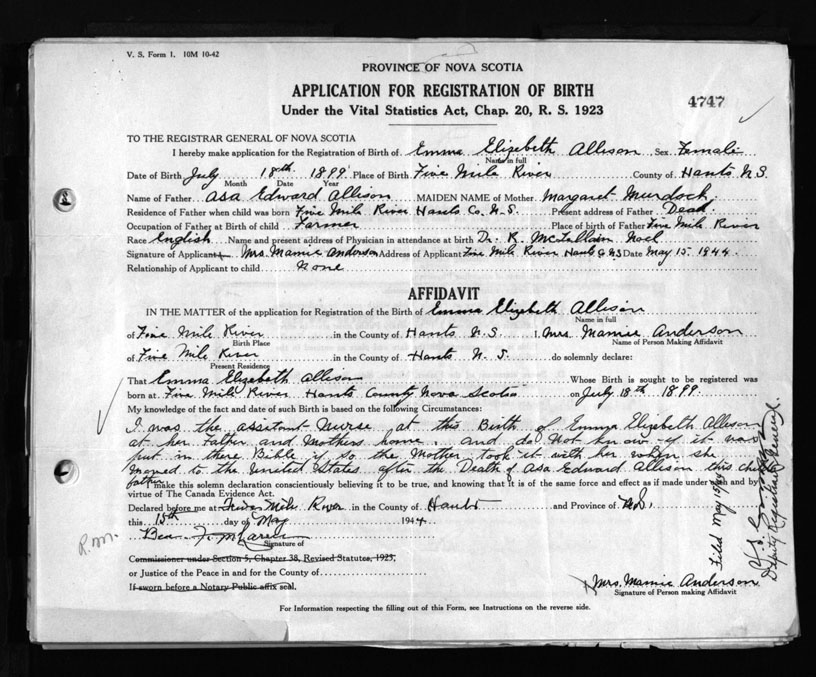 V. S. Form 1. 10M 10-42
PROVINCE OF NOVA SCOTIA
APPLICATION FOR REGISTRATION OF BIRTH
Under the Vital Statistics Act, Chap. 20, R. S. 1923
4747
TO THE REGISTRAR GENERAL OF NOVA SCOTIA
I hereby make application for the Registration of Birth of Emma Elizabeth Allison Sex Female
Name in full
Date of Birth July 18th 1899 Place of Birth Five Mile River County of Hants N.S.
Month Date Year
Name of Father Asa Edward Allison MAIDEN NAME of Mother Margaret Murdoch
Residence of Father when child was born Five Mile River Hants Co. N.S. Present address of Father Dead
Occupation of Father at Birth of child Farmer Place of birth of Father Five Mile River
Race English Name and present address of Physician in attendance at birth Dr. R. Noel
Signature of Applicant Mrs. Mamie Anderson Address of Applicant Five Mile River Hants Co N.S Date May 15 1944.
Relationship of Applicant to child None
AFFIDAVIT
IN THE MATTER of the application for Registration of the Birth of Emma Elizabeth Allison
Name in full
of Five Mile River in the County of Hants N.S. I, Mrs. Mamie Anderson
Birth Place Name of Person Making Affidavit
of Five Mile River in the County of Hants N.S. do solemnly declare:
Present Residence
That Emma Elizabeth Allison Whose Birth is sought to be registered was
born at Five Mile River Hants County Nova Scotia on July 18th 1899.
My knowledge of the fact and date of such Birth is based on the following Circumstances:
I was the assistant Nurse at this Birth of Emma Elizabeth Allison
at her Father and Mothers home. and do Not know if it was
put in there Bible if so the Mother took it with her when she
moved to the United States after the Death of Asa Edward Allison this child
father make this solemn declaration conscientiously believing it to be true, and knowing that it is of the same force and effect as if made under oath and by
virtue of The Canada Evidence Act.
Declared before me at Mile River in the County of Hants and Province of N.S.
this 15th day of May 1944
R.M.
Signature of
Commissioner under Section 5, Chapter 38, Revised Statutes, 1923,
or Justice of the Peace in and for the County of
If sworn before a Notary Public affix seal.
Mrs. Mamie Anderson
Signature of Person making Affidavit
For Information respecting the filling out of this Form, see Instructions on the reverse side.
Filed May 19/44
Deputy Registrar General.